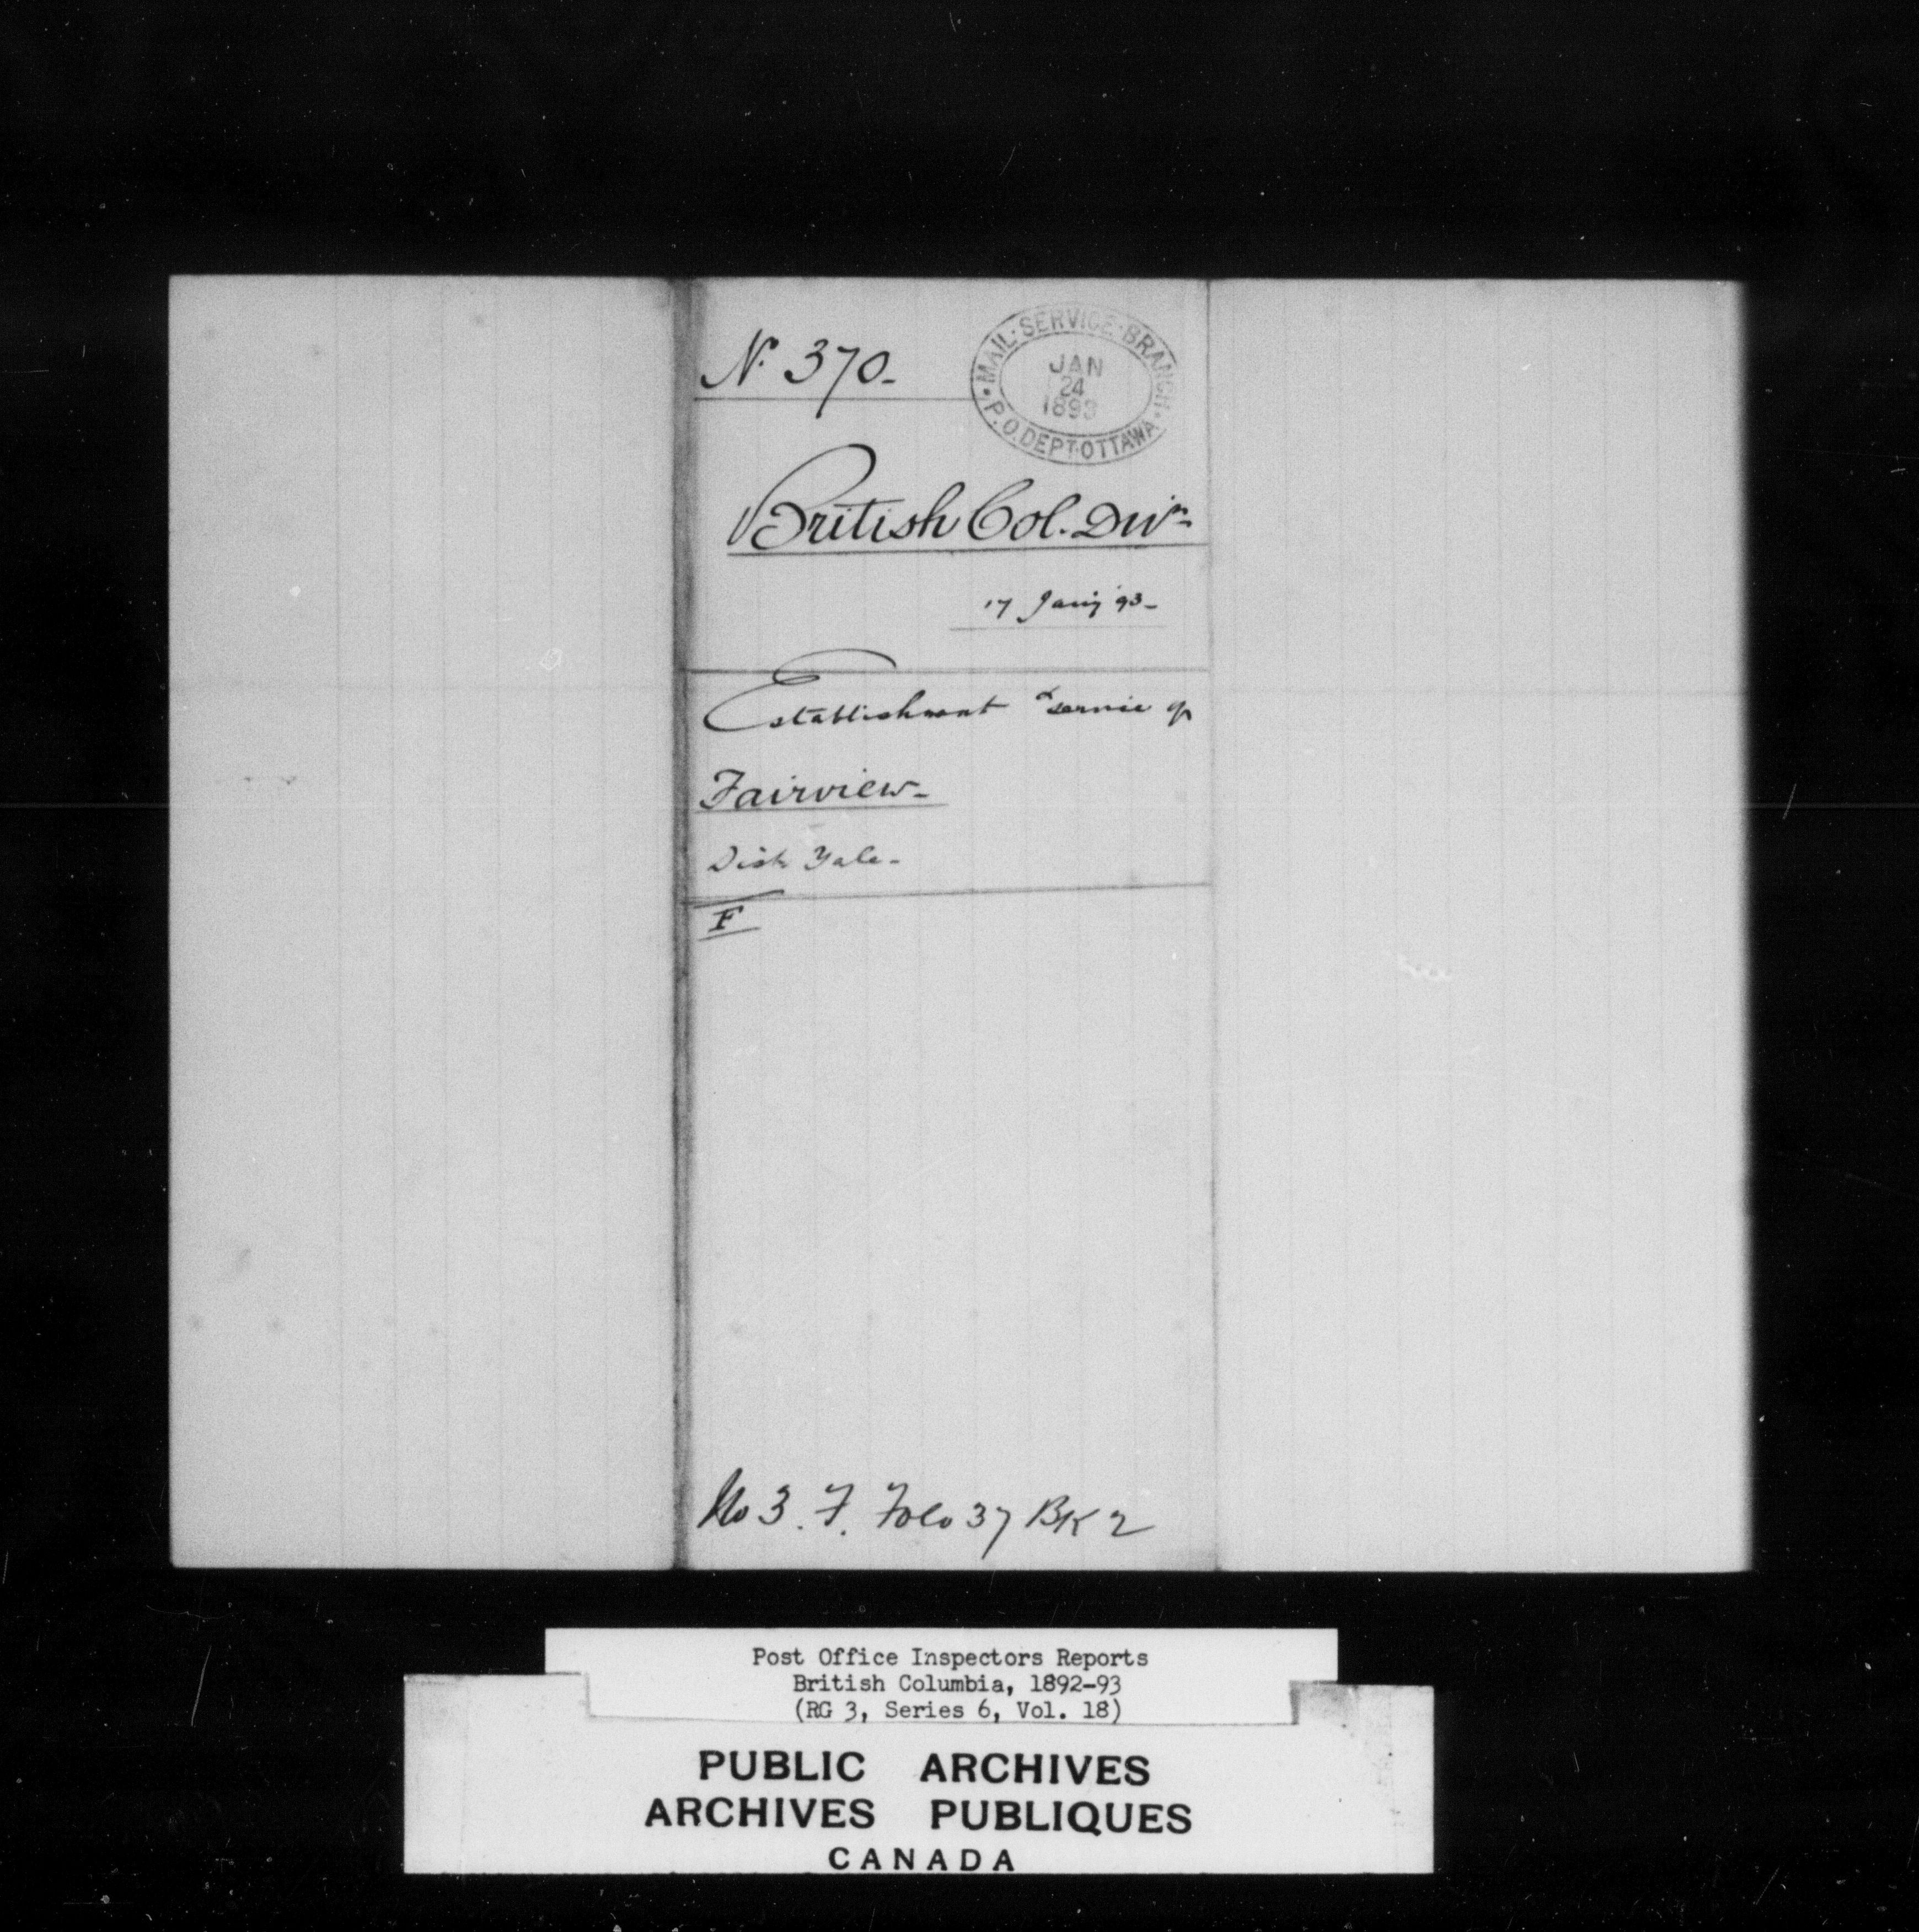 Nº 370-
MAIL·SERVICE·BRANCH
JAN
24
1893
P.O. DEPT·OTTAWA
British Col. Divn
17 Jany 93-
Establishment & service of
Fairview-
Dist Yale-
F
No 3. F. Folo 37 BK 2
Post Office Inspectors Reports
British Columbia, 1892-93
(RG 3, Series 6, Vol. 18)
PUBLIC ARCHIVES
ARCHIVES PUBLIQUES
CANADA